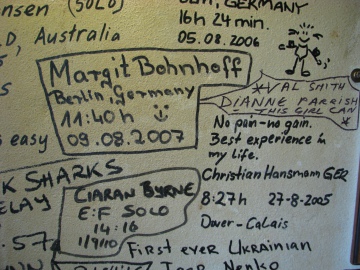 nsen (SOLO)
GERMANY
16h 24 min.
05.08.2006
Australia
Margit Bohnhoff
Berlin, Germany
11:40 h
09.08.2007
*VAL SMITH
DIANNE PARRISH
THIS GIRL CAN *
No pain-no gain.
Best experience in
my life.
Christian Hansmann GER
8:27h 27-8-2005
Dover-Calais
s easy
K SHARKS
ELAY
CIARAN BYRNE
E:F SOLO
14:16
1/9/10
:57
First ever Ukrainian